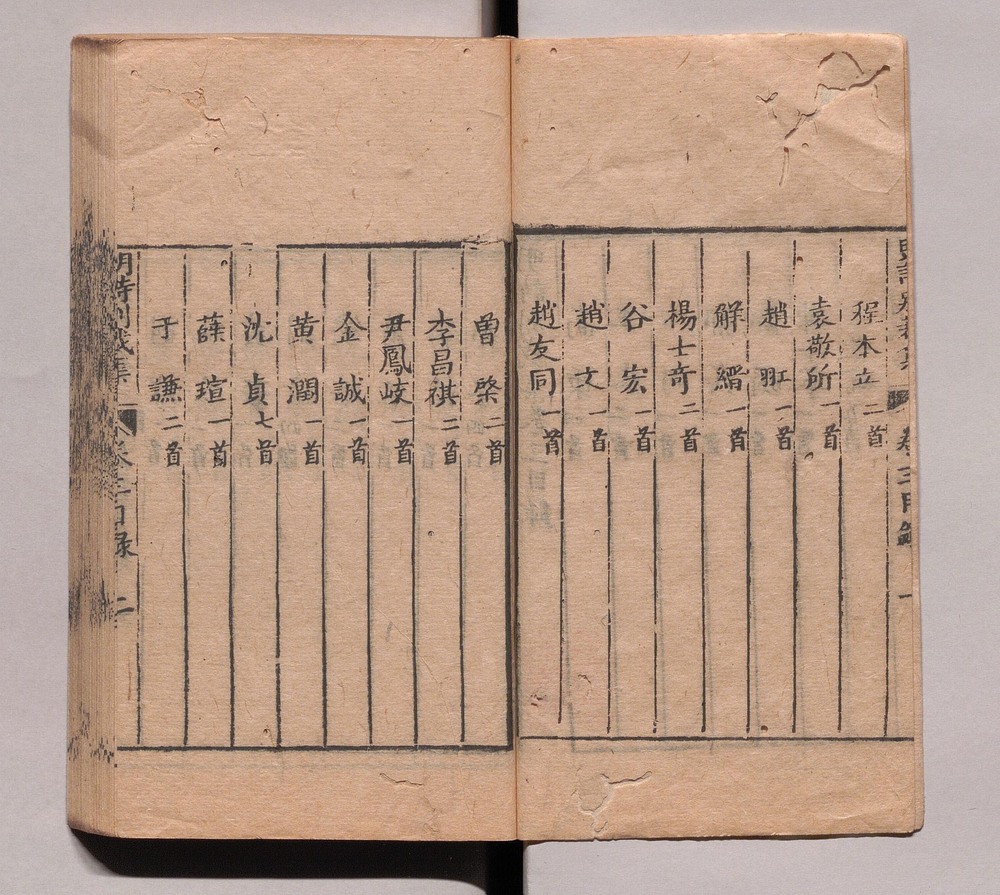 明詩別裁集 卷三目錄 一
程本立二首
袁敬所一首
趙㧦一首
解縉一首
楊士奇二首
谷宏一首
趙文一首
趙友同一首
曾棨二首
李昌祺二首
尹鳳岐一首
金誠一首
黃潤一首
沈貞七首
薛瑄一首
于謙二首
明詩別裁集 卷三目錄 二